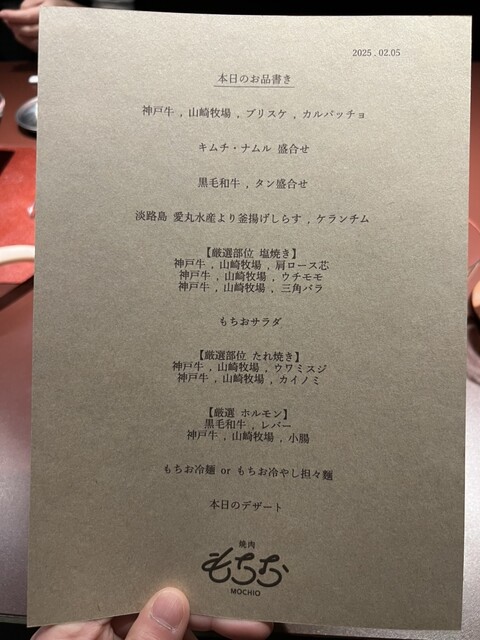 2025.02.05
本日のお品書き
神戸牛 , 山崎牧場 , ブリスケ , カルパッチョ
キムチ・ナムル 盛合せ
黒毛和牛 , タン盛合せ
淡路島 愛丸水産より釜揚げしらす , ケランチム
【厳選部位 塩焼き】
神戸牛 , 山崎牧場 , 肩ロース芯
神戸牛 , 山崎牧場 , ウチモモ
神戸牛 , 山崎牧場 , 三角バラ
もちおサラダ
【厳選部位 たれ焼き】
神戸牛 , 山崎牧場 , ウワミスジ
神戸牛 , 山崎牧場 , カイノミ
【厳選 ホルモン】
黒毛和牛 , レバー
神戸牛 , 山崎牧場 , 小腸
もちお冷麺 or もちお冷やし担々麺
本日のデザート
焼肉
もちお
MOCHIO